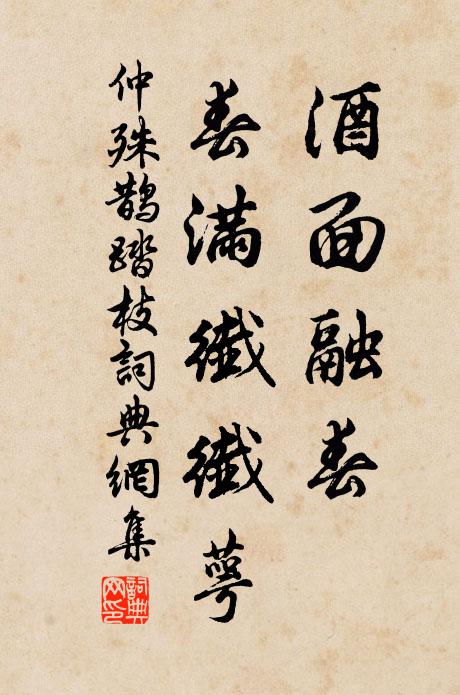 酒面融春
春满纖纖萼
仲殊鹊踏枝詞典網集
詞典網印